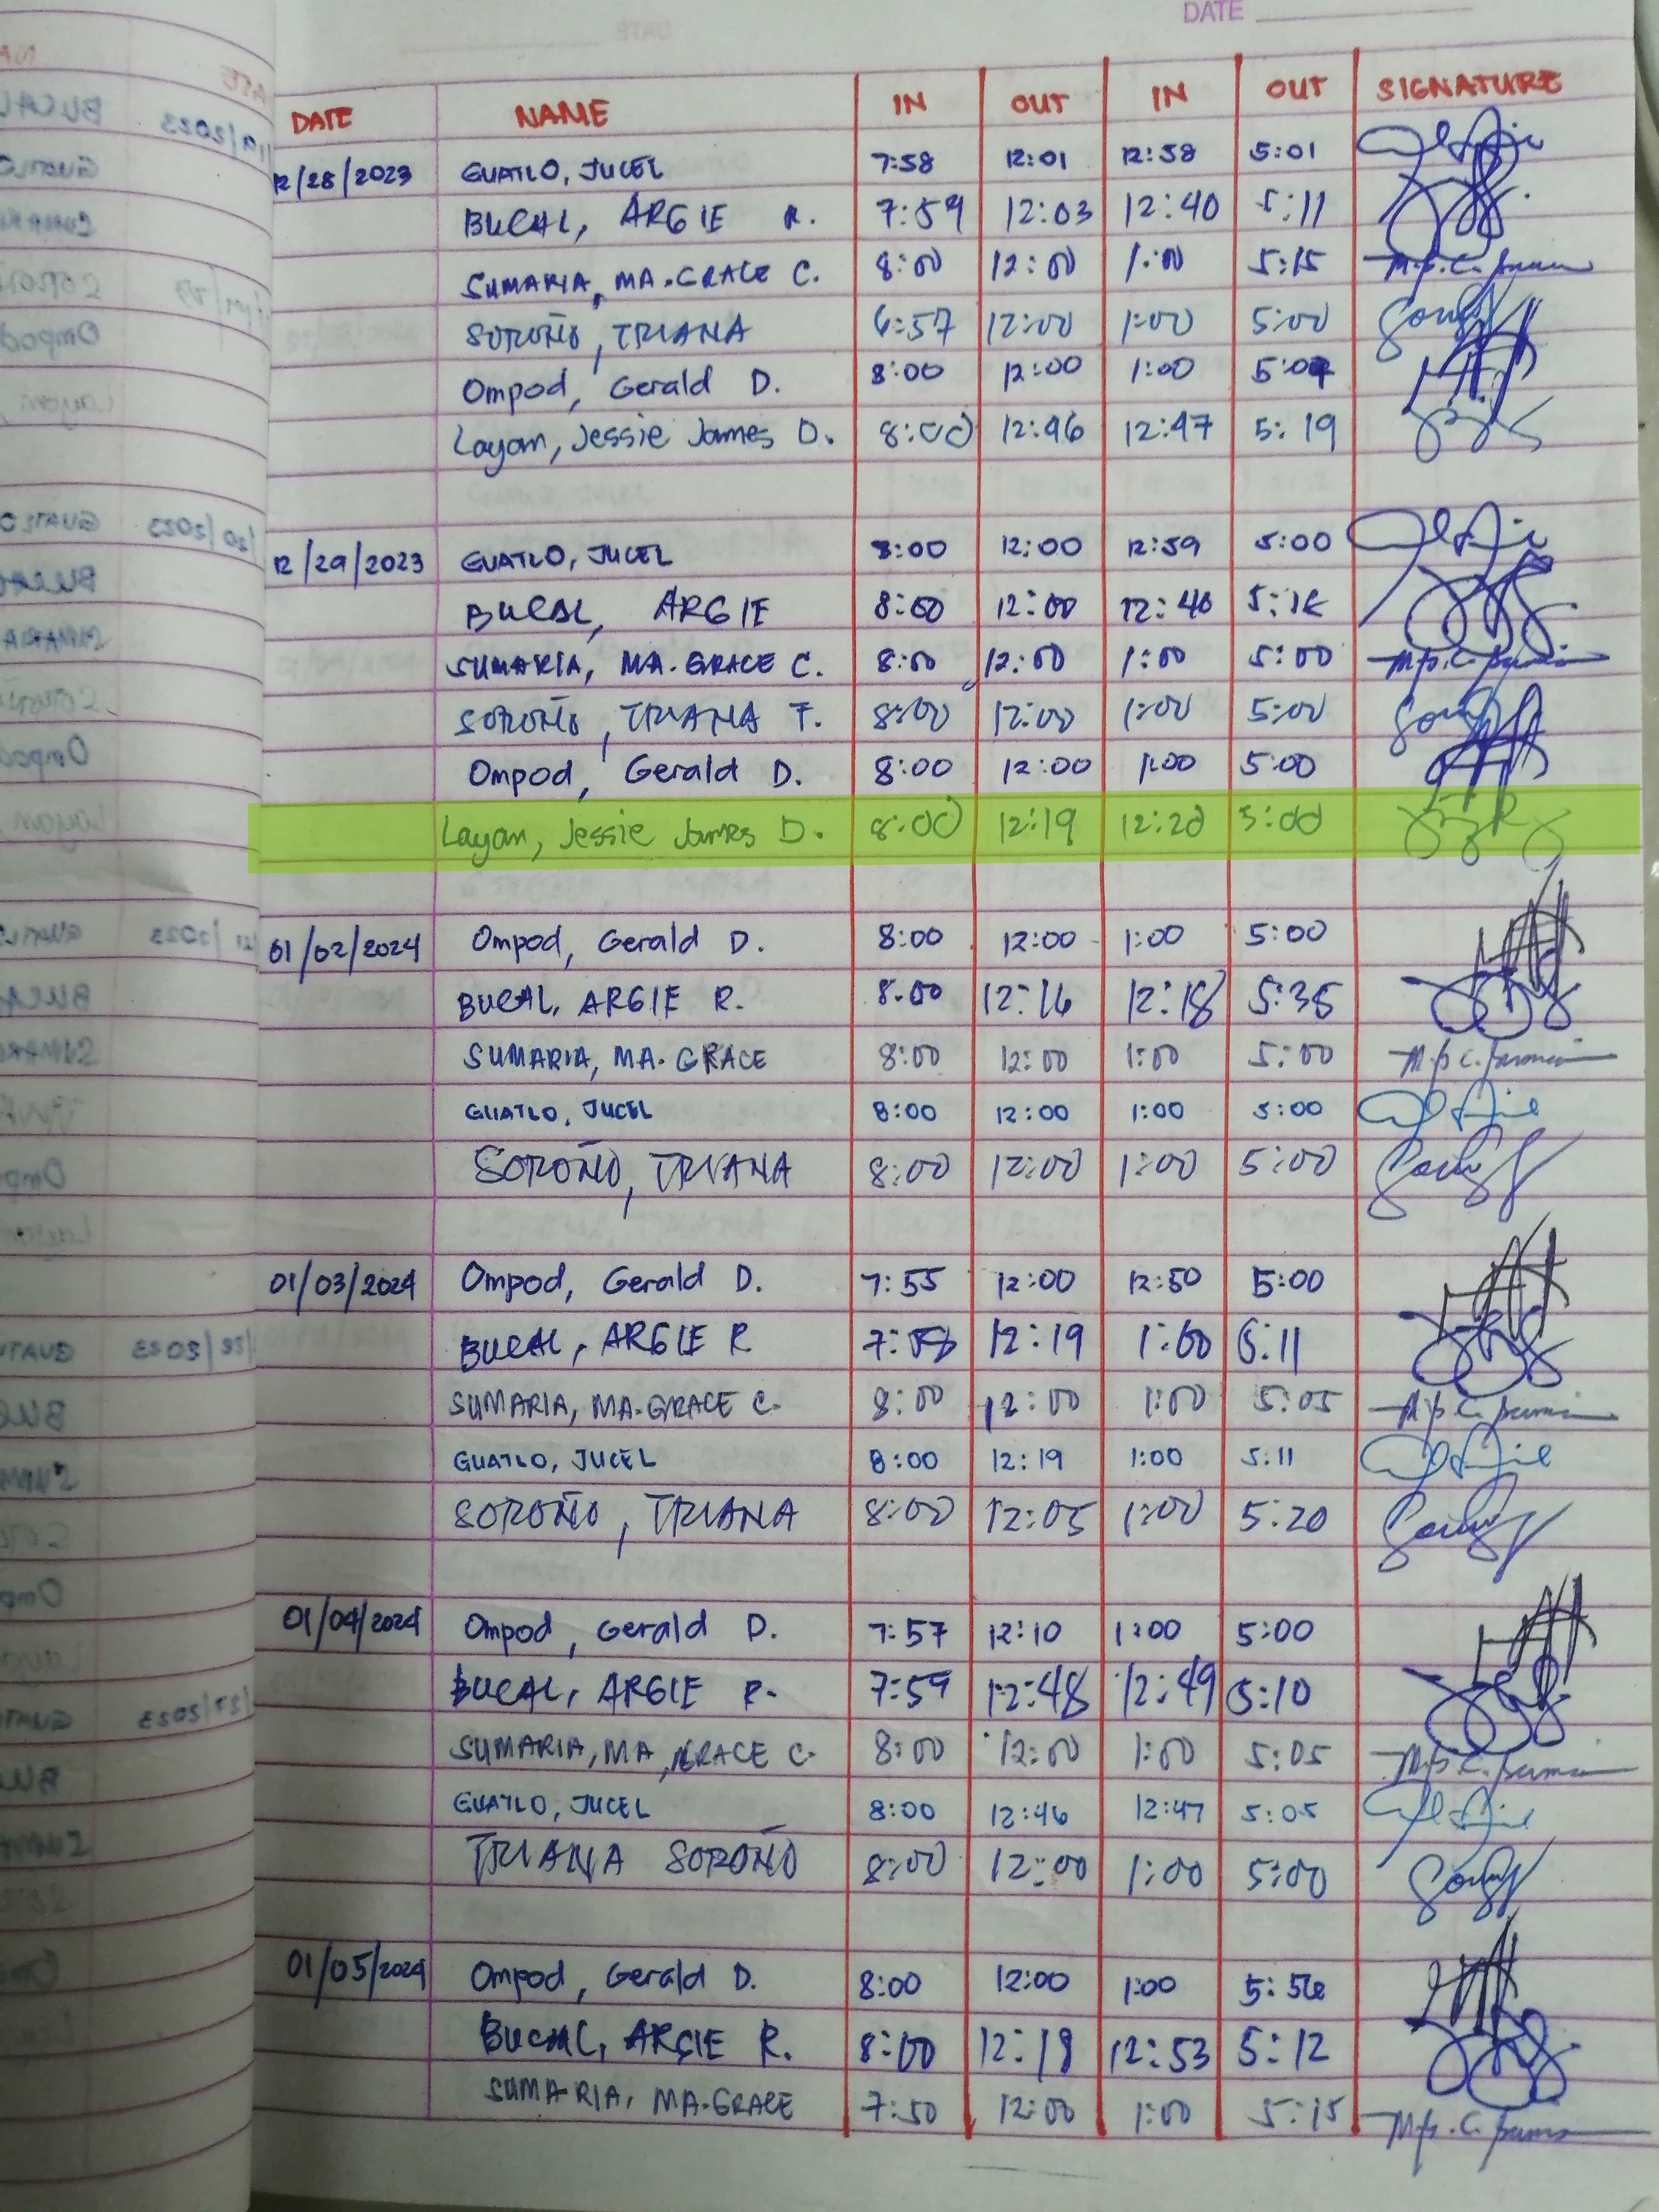 DATE
DATE NAME IN OUT IN OUT SIGNATURE
12/28/2023 GUATLO, JUCEL 7:58 12:01 12:58 5:01
BUCAL, ARGIE R. 7:59 12:03 12:40 5:11
SUMARIA, MA. GRACE C. 8:00 12:00 1:00 5:15
SOROÑO, TRIANA 6:57 12:00 1:00 5:00
Ompod, Gerald D. 8:00 12:00 1:00
Layan, Jessie James D. 8:00 12:46 12:47 5:19
12/29/2023 GUATLO, JUCEL 8:00 12:00 12:59 5:00
BUCAL, ARGIE 8:00 12:00 12:40
SUMARIA, MA. GRACE C. 8:00 12:00 1:00 5:00
SOROÑO, TRIANA F. 8:00 12:00 1:00 5:00
Ompod, Gerald D. 8:00 12:00 1:00 5:00
Layan, Jessie James D. 8:00 12:19 12:20 5:00
01/02/2024 Ompod, Gerald D. 8:00 12:00 1:00 5:00
BUCAL, ARGIE R. 8:00 12:16 12:18 5:35
SUMARIA, MA. GRACE 8:00 12:00 1:00 5:00
GUATLO, JUCEL 8:00 12:00 1:00 5:00
SOROÑO, TRIANA 8:00 12:00 1:00 5:00
01/03/2024 Ompod, Gerald D. 7:55 12:00 12:50 5:00
BUCAL, ARGIE R 12:19 1:00 5:11
SUMARIA, MA. GRACE C. 8:00 12:00 1:00 5:05
GUATLO, JUCEL 8:00 12:19 1:00 5:11
SOROÑO, TRIANA 8:00 12:05 1:00 5:20
01/04/2024 Ompod, Gerald D. 7:57 12:10 1:00 5:00
BUCAL, ARGIE R. 7:59 12:48 12:49 5:10
SUMARIA, MA, GRACE C. 8:00 12:00 1:00 5:05
GUATLO, JUCEL 8:00 12:46 12:47 5:05
TRIANA SOROÑO 8:00 12:00 1:00 5:00
01/05/2024 Ompod, Gerald D. 8:00 12:00 1:00 5:56
BUCAL, ARGIE R. 8:00 12:18 12:53 5:12
SUMARIA, MA. GRACE 7:50 12:00 1:00 5:15